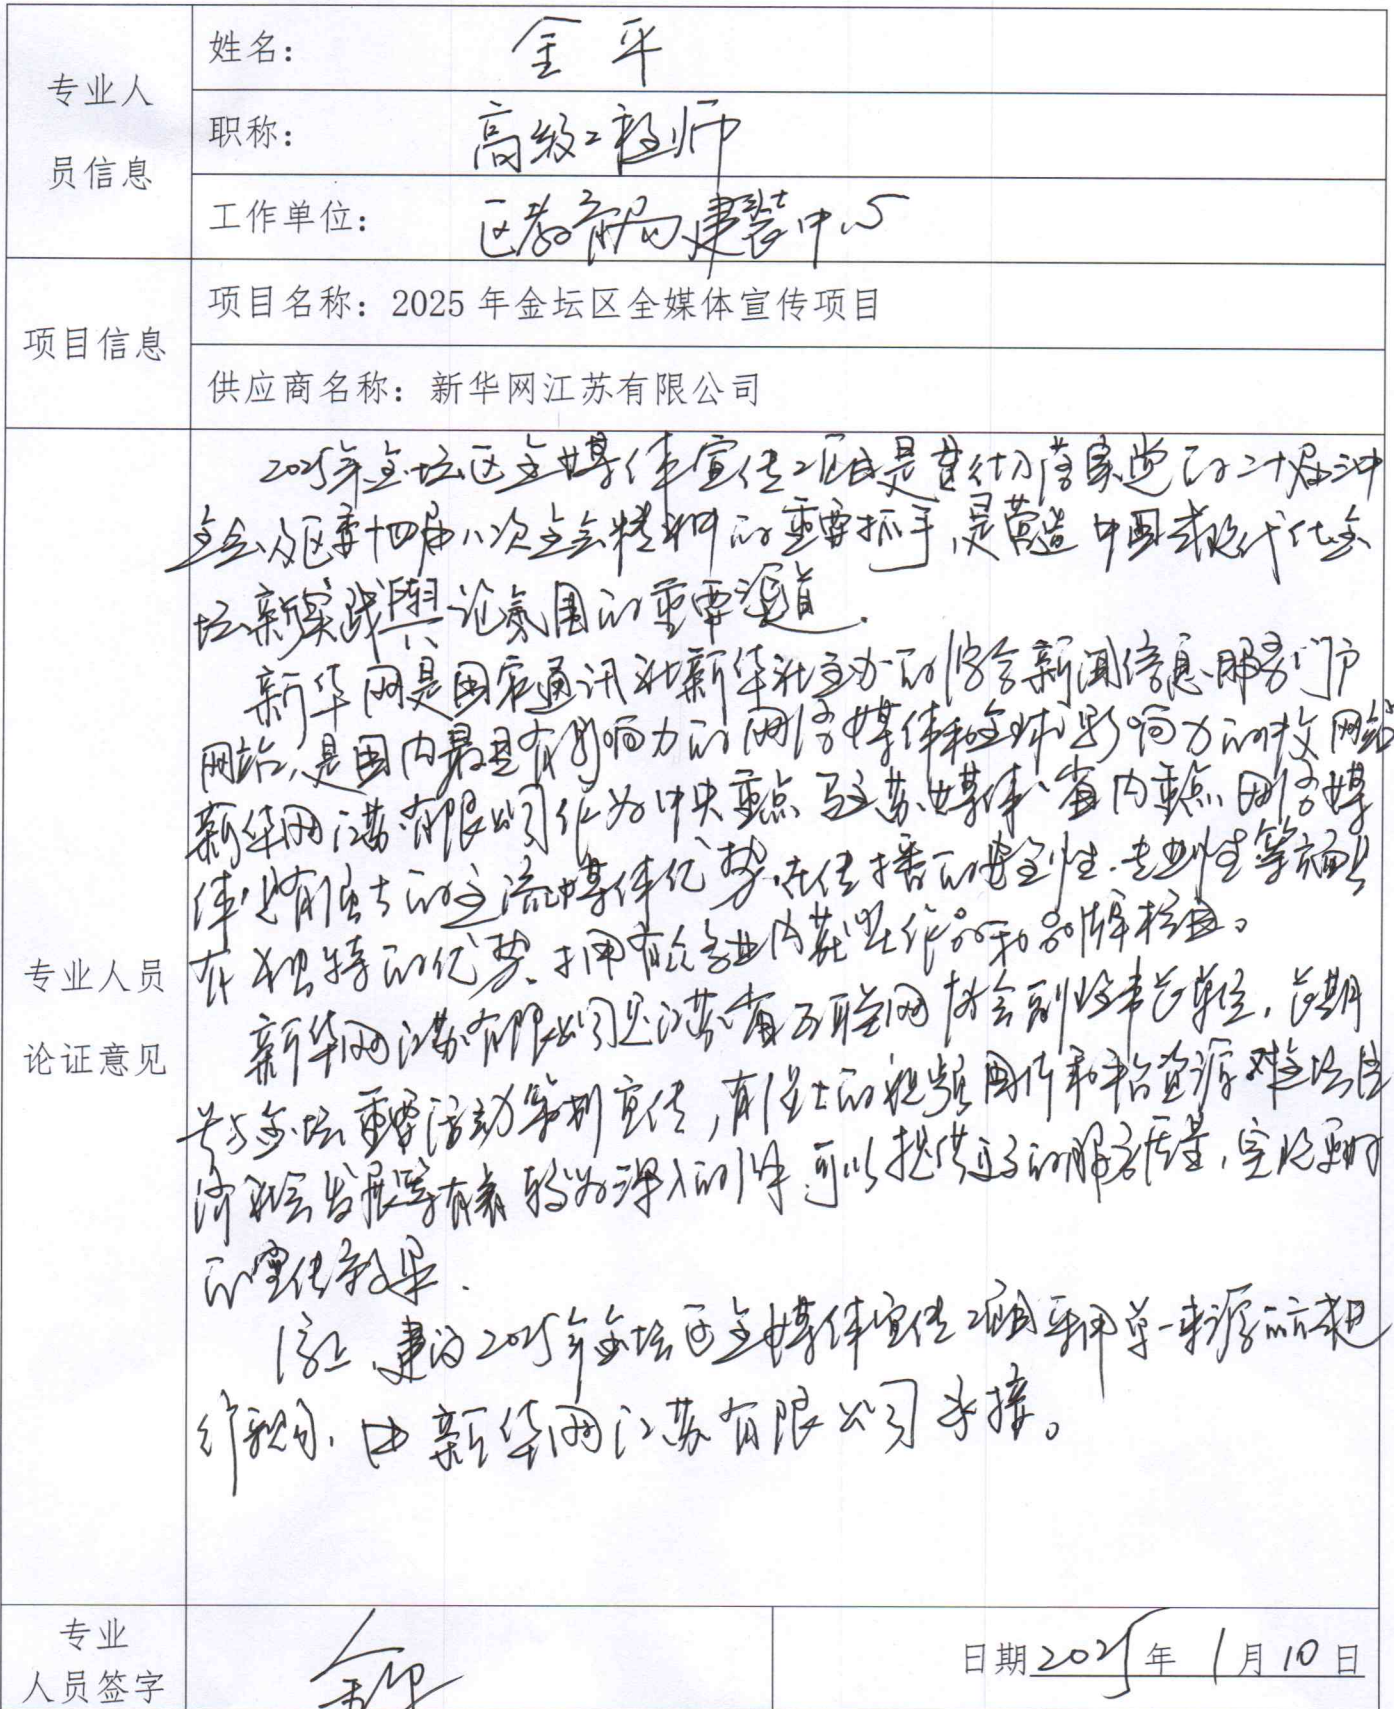 专业人
员信息
姓名：
金平
职称：
高级工程师
工作单位：
区教育局建装中心
项目信息
项目名称：2025年金坛区全媒体宣传项目
供应商名称：新华网江苏有限公司
专业人员
论证意见
2025年金坛区全媒体宣传项目是贯彻落实党的二十届三中
全会及区委十四届八次全会精神的重要抓手，是营造中国式现代化金
坛新实践舆论氛围的重要渠道.
新华网是国家通讯社新华社主办的综合新闻信息服务门户
网站，是国内最具有影响力的网络媒体和全球影响力的中文网站
新华网江苏有限公司作为中央重点驻苏媒体、省内重点网络媒
体，具有强大的主流媒体优势，在传播的安全性、专业性等方面具
有独特的优势、拥有众多业内获奖作品和品牌栏目。
新华网江苏有限公司是江苏省互联网协会副理事长单位，长期
参与金坛重要活动策划宣传，有强大的视频图片和平台资源，对金坛经
济社会发展等有着较为深入的了解，可以提供更多的服务质量，实现更好
的宣传效果.
综上，建议2025年金坛区全媒体宣传项目采用单一来源方式进
行采购，由新华网江苏有限公司承接。
专业
人员签字
金平
日期2025年1月10日